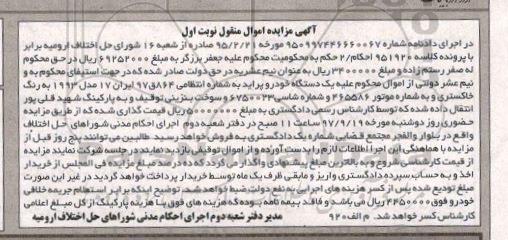 آگهی مزایده اموال منقول نوبت اول
در اجرای دادنامه شماره ۹۵۰۹۹۷۴۴۶۶۶۰۰۶۷ مورخه ۹۵/۲/۲۱ صادره از شعبه ۱۶ شورای حل اختلاف ارومیه برابر
با پرونده کلاسه ۹۵۱۹۲۰ احکام/۲ حکم به محکومیت محکوم علیه جعفر برزگر به مبلغ ۶۹۲۵۲۰۰۰ ریال در حق محکوم
له صفر رستم زاده و مبلغ ۳۴۰۰۰۰۰ ریال به عنوان نیم عشر به در حق دولت صادر شده که در جهت استیفای محکوم به و
نیم عشر دولتی از اموال محکوم علیه یک دستگاه خودرو پراید به شماره انتظامی ۸۶۴ق۹۷ ایران ۱۷ مدل ۱۳۹۳ به رنگ
خاکستری و به شماره موتور ۴۶۵۵۸۶ و شماره شاسی ۶۷۵۰۰۳۳ و سوخت بنزینی توقیف و به پارکینگ شهید قلی پور
انتقال داده شده که توسط کارشناس رسمی دادگستری به مبلغ ۵۰۰۰۰۰۰۰ ریال قیمت گذاری شده که از طریق مزایده
حضوری روز دوشنبه مورخه ۹۷/۸/۱۹ ساعت ۱۱ صبح در دفتر شعبه دوم اجرای احکام مدنی شوراهای حل اختلاف
واقع در بلوار والفجر مجتمع قضایی شماره یک دادگستری به فروش خواهد رسید طالبین می توانند پنج روز قبل از
مزایده با هماهنگی این اجرا اطلاعات لازم را بدست آورده و از اموال توقیفی بازدید نمایند در جلسه شرکت نمایند مزایده
از قیمت کارشناسی شروع و به بالاترین مبلغ پیشنهادی واگذار می گردد که ده درصد مبلغ مزایده فی المجلس از خریدار
اخذ و به حساب سپرده دادگستری واریز و مابقی ظرف یک ماه توسط خریدار پرداخت خواهد گردید در غیر این صورت
مبلغ تودیع شده پس از کسر هزینه های اجرایی به نفع دولت ضبط خواهد شد. توضیح اینکه برابر استعلام جریمه خلافی
خودرو فوق ۴۴۵۰۰۰۰ ریال می باشد و فاقد بیمه نامه بوده که هزینه های فوق با هزینه پارکینگ از کل مبلغ اعلامی
کارشناس کسر خواهد شد. م الف ۹۲۰
مدیر دفتر شعبه دوم اجرای احکام مدنی شوراهای حل اختلاف ارومیه